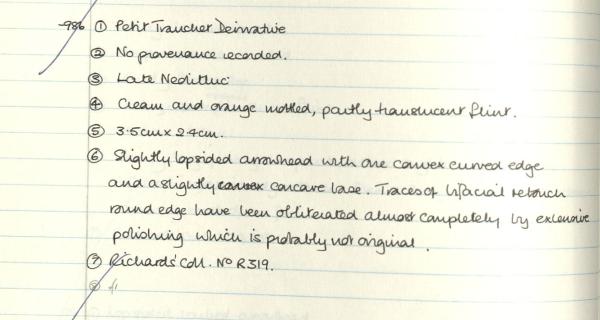 -986 ① Petit Tranchet Derivative
② No provenance recorded.
③ Late Neolithic
④ Cream and orange mottled, partly translucent flint.
⑤ 3.5cm x 2.4cm.
⑥ Slightly lopsided arrowhead with one convex curved edge
and a slightly convex concave base. Traces of bifacial retouch
round edge have been obliterated almost completely by extensive
polishing which is probably not original.
⑦ Richards' Coll. No R319.
⑧